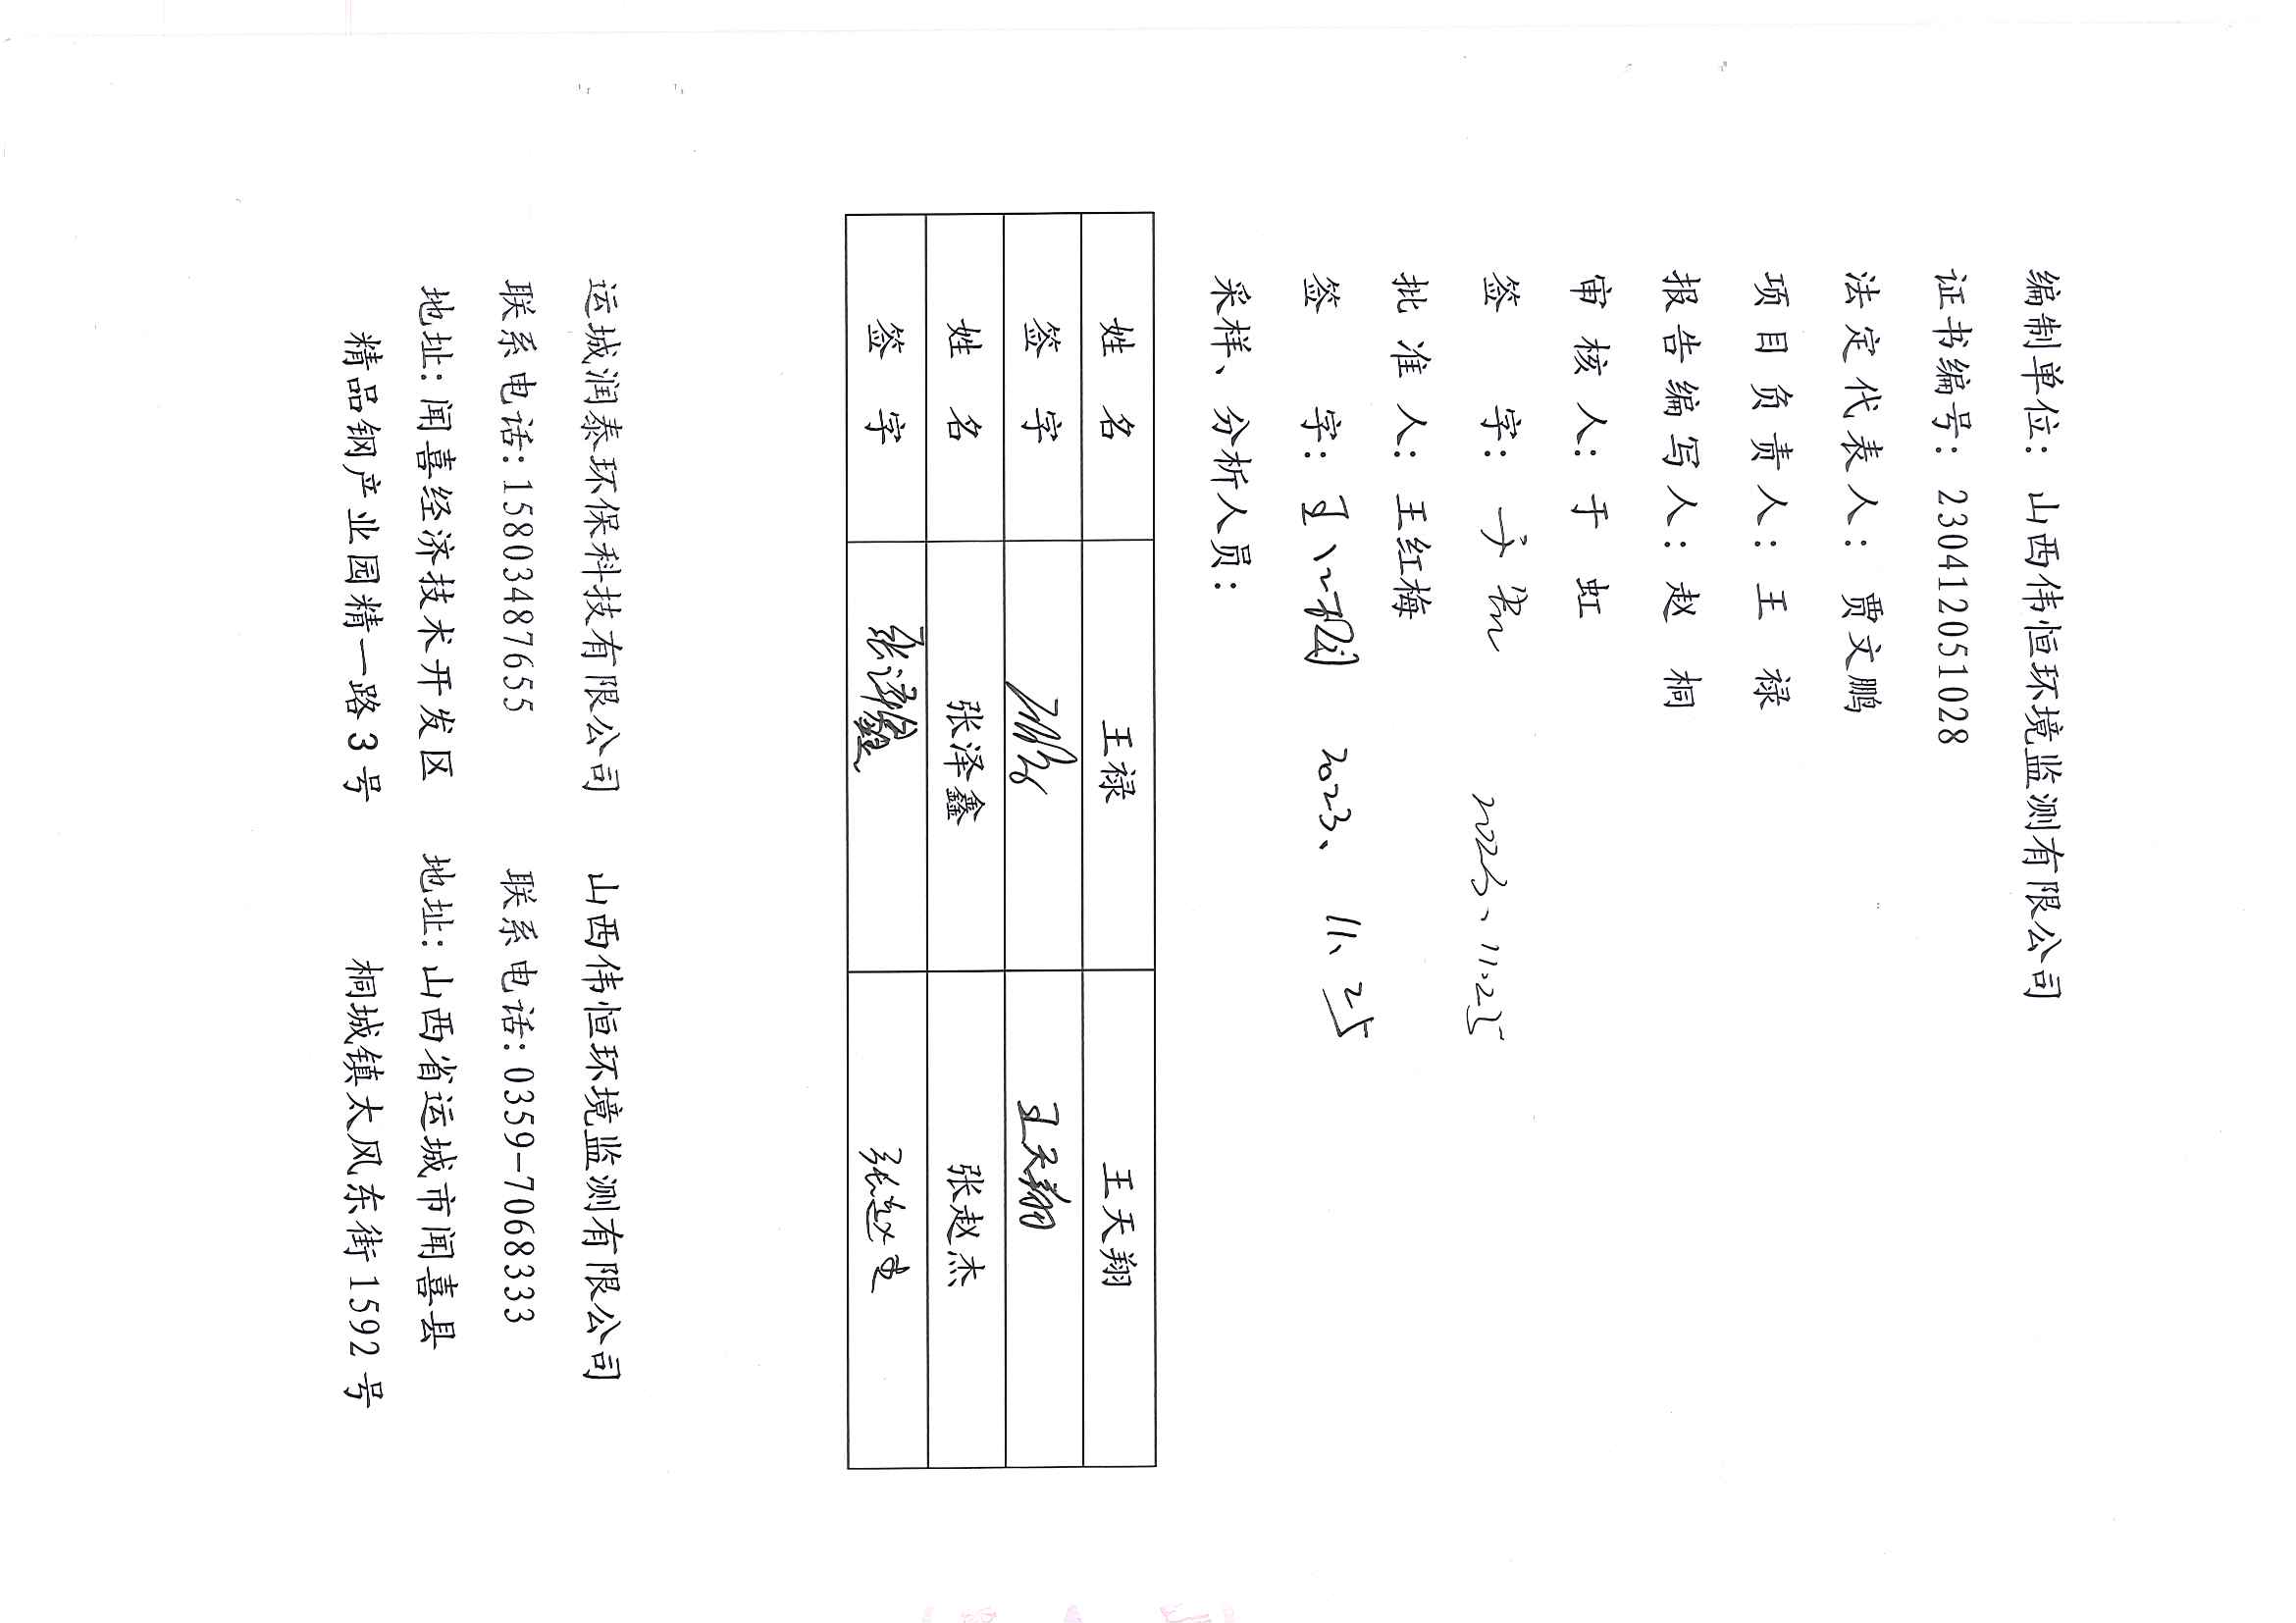 编制单位：山西伟恒环境监测有限公司
证书编号：230412051028
法定代表人：贾文鹏
项目负责人：王 禄
报告编写人：赵 桐
审核人：于 虹
签 字：于虹 2023、11.25
批准人：王红梅
签 字：王红梅 2023、11、25
采样、分析人员：
姓 名 王禄 王天翔
签 字 王禄 王天翔
姓 名 张泽鑫 张赵杰
签 字 张泽鑫 张赵杰
运城润泰环保科技有限公司 山西伟恒环境监测有限公司
联系电话：15803487655 联系电话：0359-7068333
地址：闻喜经济技术开发区 地址：山西省运城市闻喜县
精品钢产业园精一路3号 桐城镇太风东街1592号